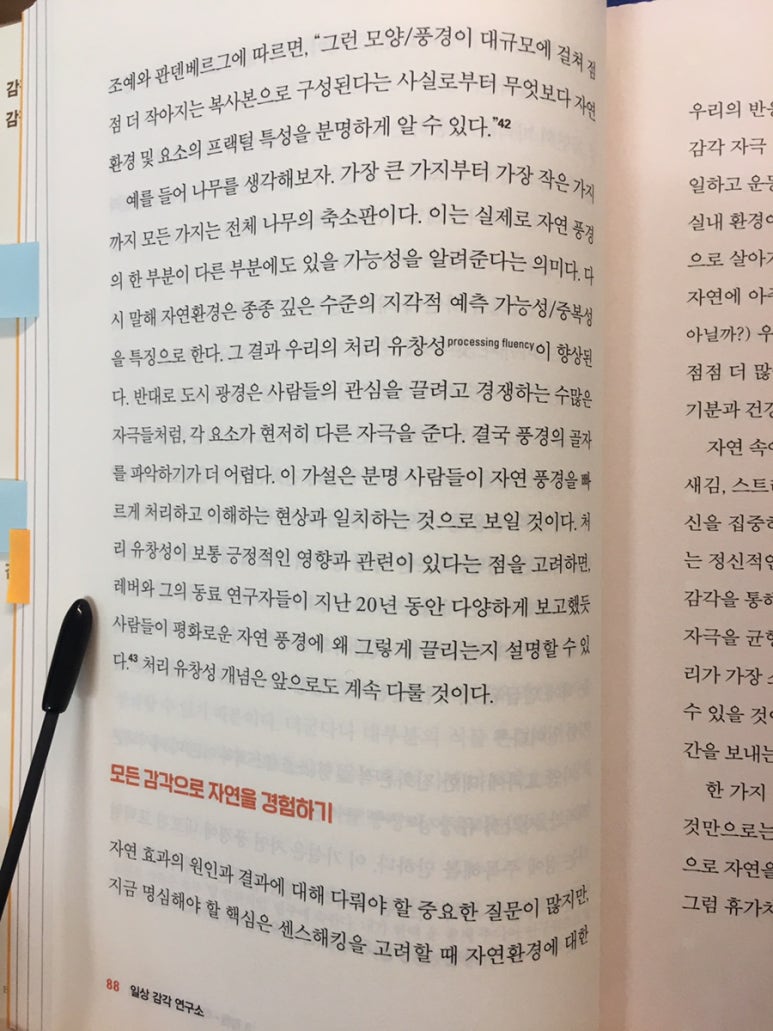 조예와 판덴베르그에 따르면, “그런 모양/풍경이 대규모에 걸쳐 점
점 더 작아지는 복사본으로 구성된다는 사실로부터 무엇보다 자연
환경 및 요소의 프랙털 특성을 분명하게 알 수 있다.”42
예를 들어 나무를 생각해보자. 가장 큰 가지부터 가장 작은 가지
까지 모든 가지는 전체 나무의 축소판이다. 이는 실제로 자연 풍경
의 한 부분이 다른 부분에도 있을 가능성을 알려준다는 의미다. 다
시 말해 자연환경은 종종 깊은 수준의 지각적 예측 가능성/중복성
을 특징으로 한다. 그 결과 우리의 처리 유창성processing fluency이 향상된
다. 반대로 도시 광경은 사람들의 관심을 끌려고 경쟁하는 수많은
자극들처럼, 각 요소가 현저히 다른 자극을 준다. 결국 풍경의 골자
를 파악하기가 더 어렵다. 이 가설은 분명 사람들이 자연 풍경을 빠
르게 처리하고 이해하는 현상과 일치하는 것으로 보일 것이다. 처
리 유창성이 보통 긍정적인 영향과 관련이 있다는 점을 고려하면,
레버와 그의 동료 연구자들이 지난 20년 동안 다양하게 보고했듯
사람들이 평화로운 자연 풍경에 왜 그렇게 끌리는지 설명할 수 있
다.43 처리 유창성 개념은 앞으로도 계속 다룰 것이다.
모든 감각으로 자연을 경험하기
자연 효과의 원인과 결과에 대해 다뤄야 할 중요한 질문이 많지만,
지금 명심해야 할 핵심은 센스해킹을 고려할 때 자연환경에 대한
88 일상 감각 연구소
우리의 반응
감각 자극
일하고 운동
실내 환경이
으로 살아가
자연에 아주
아닐까?) 우
점점 더 많
기분과 건강
자연 속에
새김, 스트리
신을 집중하
는 정신적인
감각을 통해
자극을 균형
리가 가장 스
수 있을 것이
간을 보내는
한 가지
것만으로는
으로 자연을
그럼 휴가차